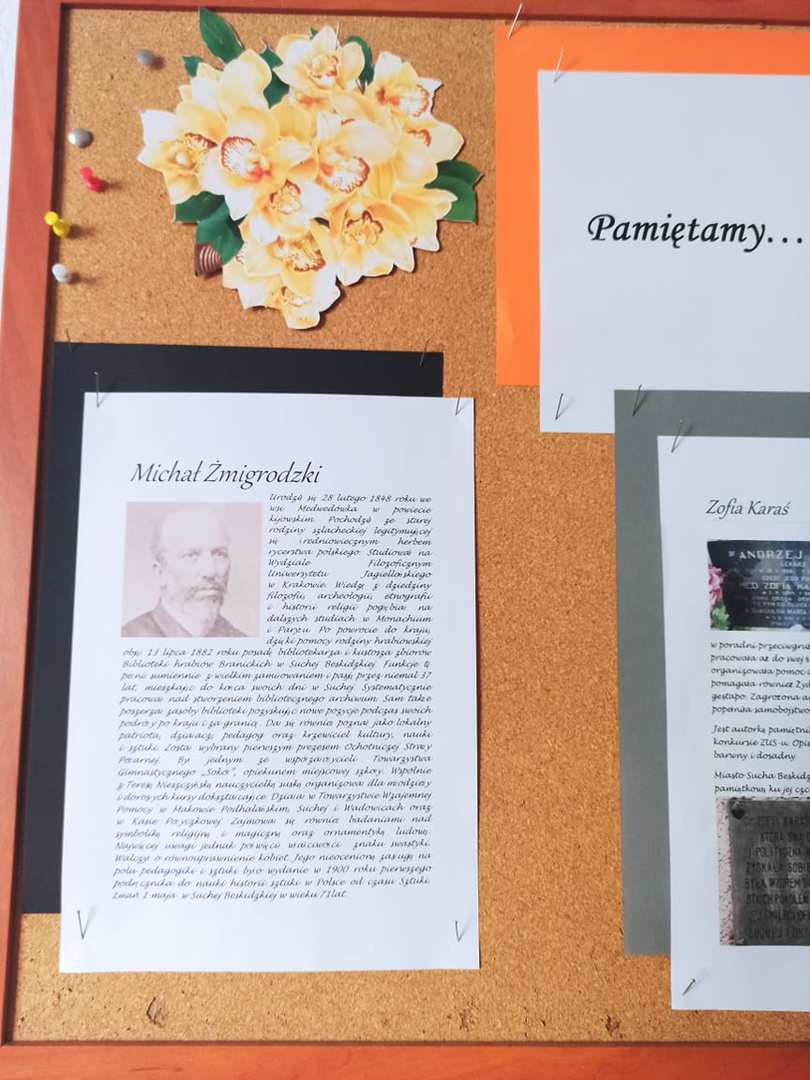 Pamiętamy...
Michał Żmigrodzki
Urodził się 28 lutego 1848 roku we
wsi Medwedówka w powiecie
kijowskim. Pochodził ze starej
rodziny szlacheckiej legitymującej
się średniowiecznym herbem
rycerstwa polskiego. Studiował na
Wydziale Filozoficznym
Uniwersytetu Jagiellońskiego
w Krakowie. Wiedzę z dziedziny
filozofii, archeologii, etnografii
i historii religii pogłębiał na
dalszych studiach w Monachium
i Paryżu. Po powrocie do kraju,
dzięki pomocy rodziny hrabiowskiej
objął 13 lipca 1882 roku posadę bibliotekarza i kustosza zbiorów
Biblioteki hrabiów Branickich w Suchej Beskidzkiej. Funkcję tę
pełnił sumiennie z wielkim zamiłowaniem i pasją przez niemal 37
lat, mieszkając do końca swoich dni w Suchej. Systematycznie
pracował nad stworzeniem bibliotecznego archiwum. Sam także
poszerzał zasoby biblioteki pozyskując nowe pozycje podczas swoich
podróży po kraju i za granicą. Dał się również poznać jako lokalny
patriota, działacz, pedagog oraz krzewiciel kultury, nauki
i sztuki. Został wybrany pierwszym prezesem Ochotniczej Straży
Pożarnej. Był jednym ze współzałożycieli Towarzystwa
Gimnastycznego „Sokół”, opiekunem miejscowej szkoły. Wspólnie
z Teresą Nieszczyńską nauczycielką suską organizował dla młodzieży
i dorosłych kursy dokształcające. Działał w Towarzystwie Wzajemnej
Pomocy w Makowie Podhalańskim, Suchej i Wadowicach oraz
w Kasie Pożyczkowej. Zajmował się również badaniami nad
symboliką religijną i magiczną oraz ornamentyką ludową.
Najwięcej uwagi jednak poświęcił właściwości znaku swastyki.
Walczył o równouprawnienie kobiet. Jego nieocenioną zasługą na
polu pedagogiki i sztuki było wydanie w 1900 roku pierwszego
podręcznika do nauki historii sztuki w Polsce od czasu Sztuki.
Zmarł 1 maja w Suchej Beskidzkiej w wieku 71 lat.
Zofia Karaś
ANDRZEJ
ZOFIA
w poradni przeciwgruź
pracowała aż do swej ś
organizowała pomoc d
pomagała również Żyd
gestapo. Zagrożona a
popełniła samobójstwo
Jest autorką pamiętni
konkursie ZUS-u. Opis
barwny i dosadny.
Miasto Sucha Beskidz
pamiątkową ku jej czci
ZOFII KARAŚ
KTÓRA SWĄ
I POLITYCZNĄ
ZYSKAŁA SOBIE
BYŁA WZOREM